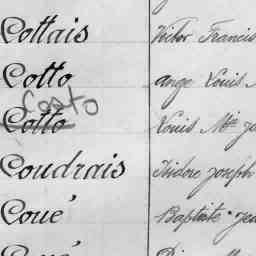 Cottais Victor Francis
Cotto ange Louis
Costo
Cotto Louis Mie
Coudrais Isidore joseph
Coué Baptiste